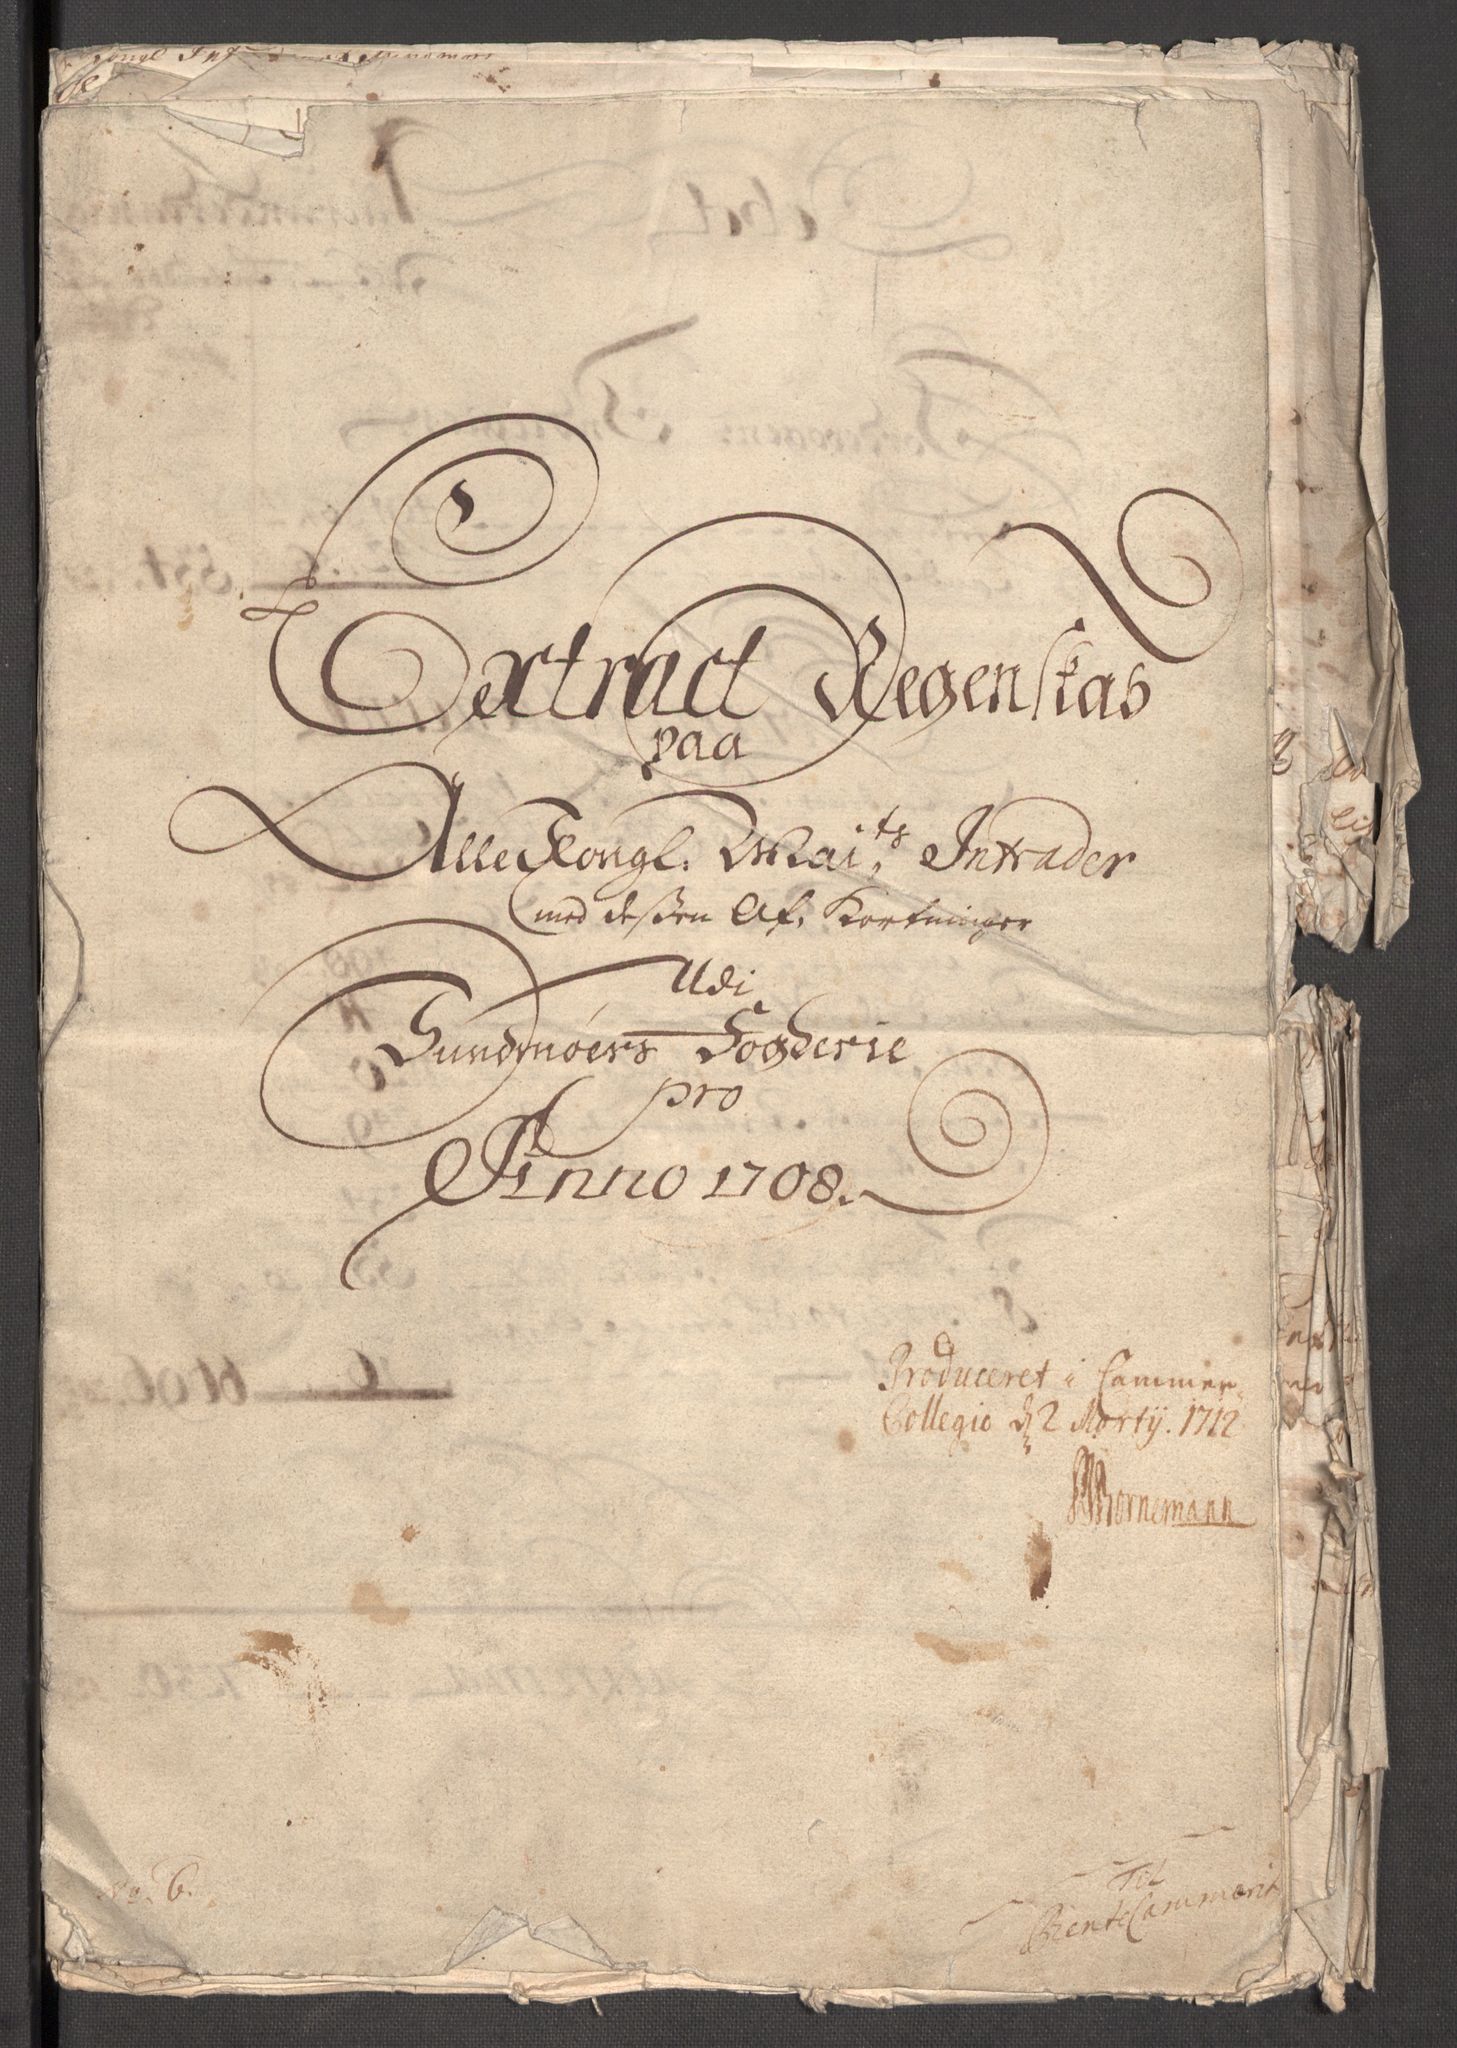 Extract Regenskab
paa
Alle Kongl. Mai.ts Intrader
med deßen Af. Kortninger
Udi
Sundmøers Fogderie
pro
Anno 1708.
Produceret i Cammer
Collegio d. 2 Martij. 1712
Bornemann
No. 6.
Til
RenteCammerit